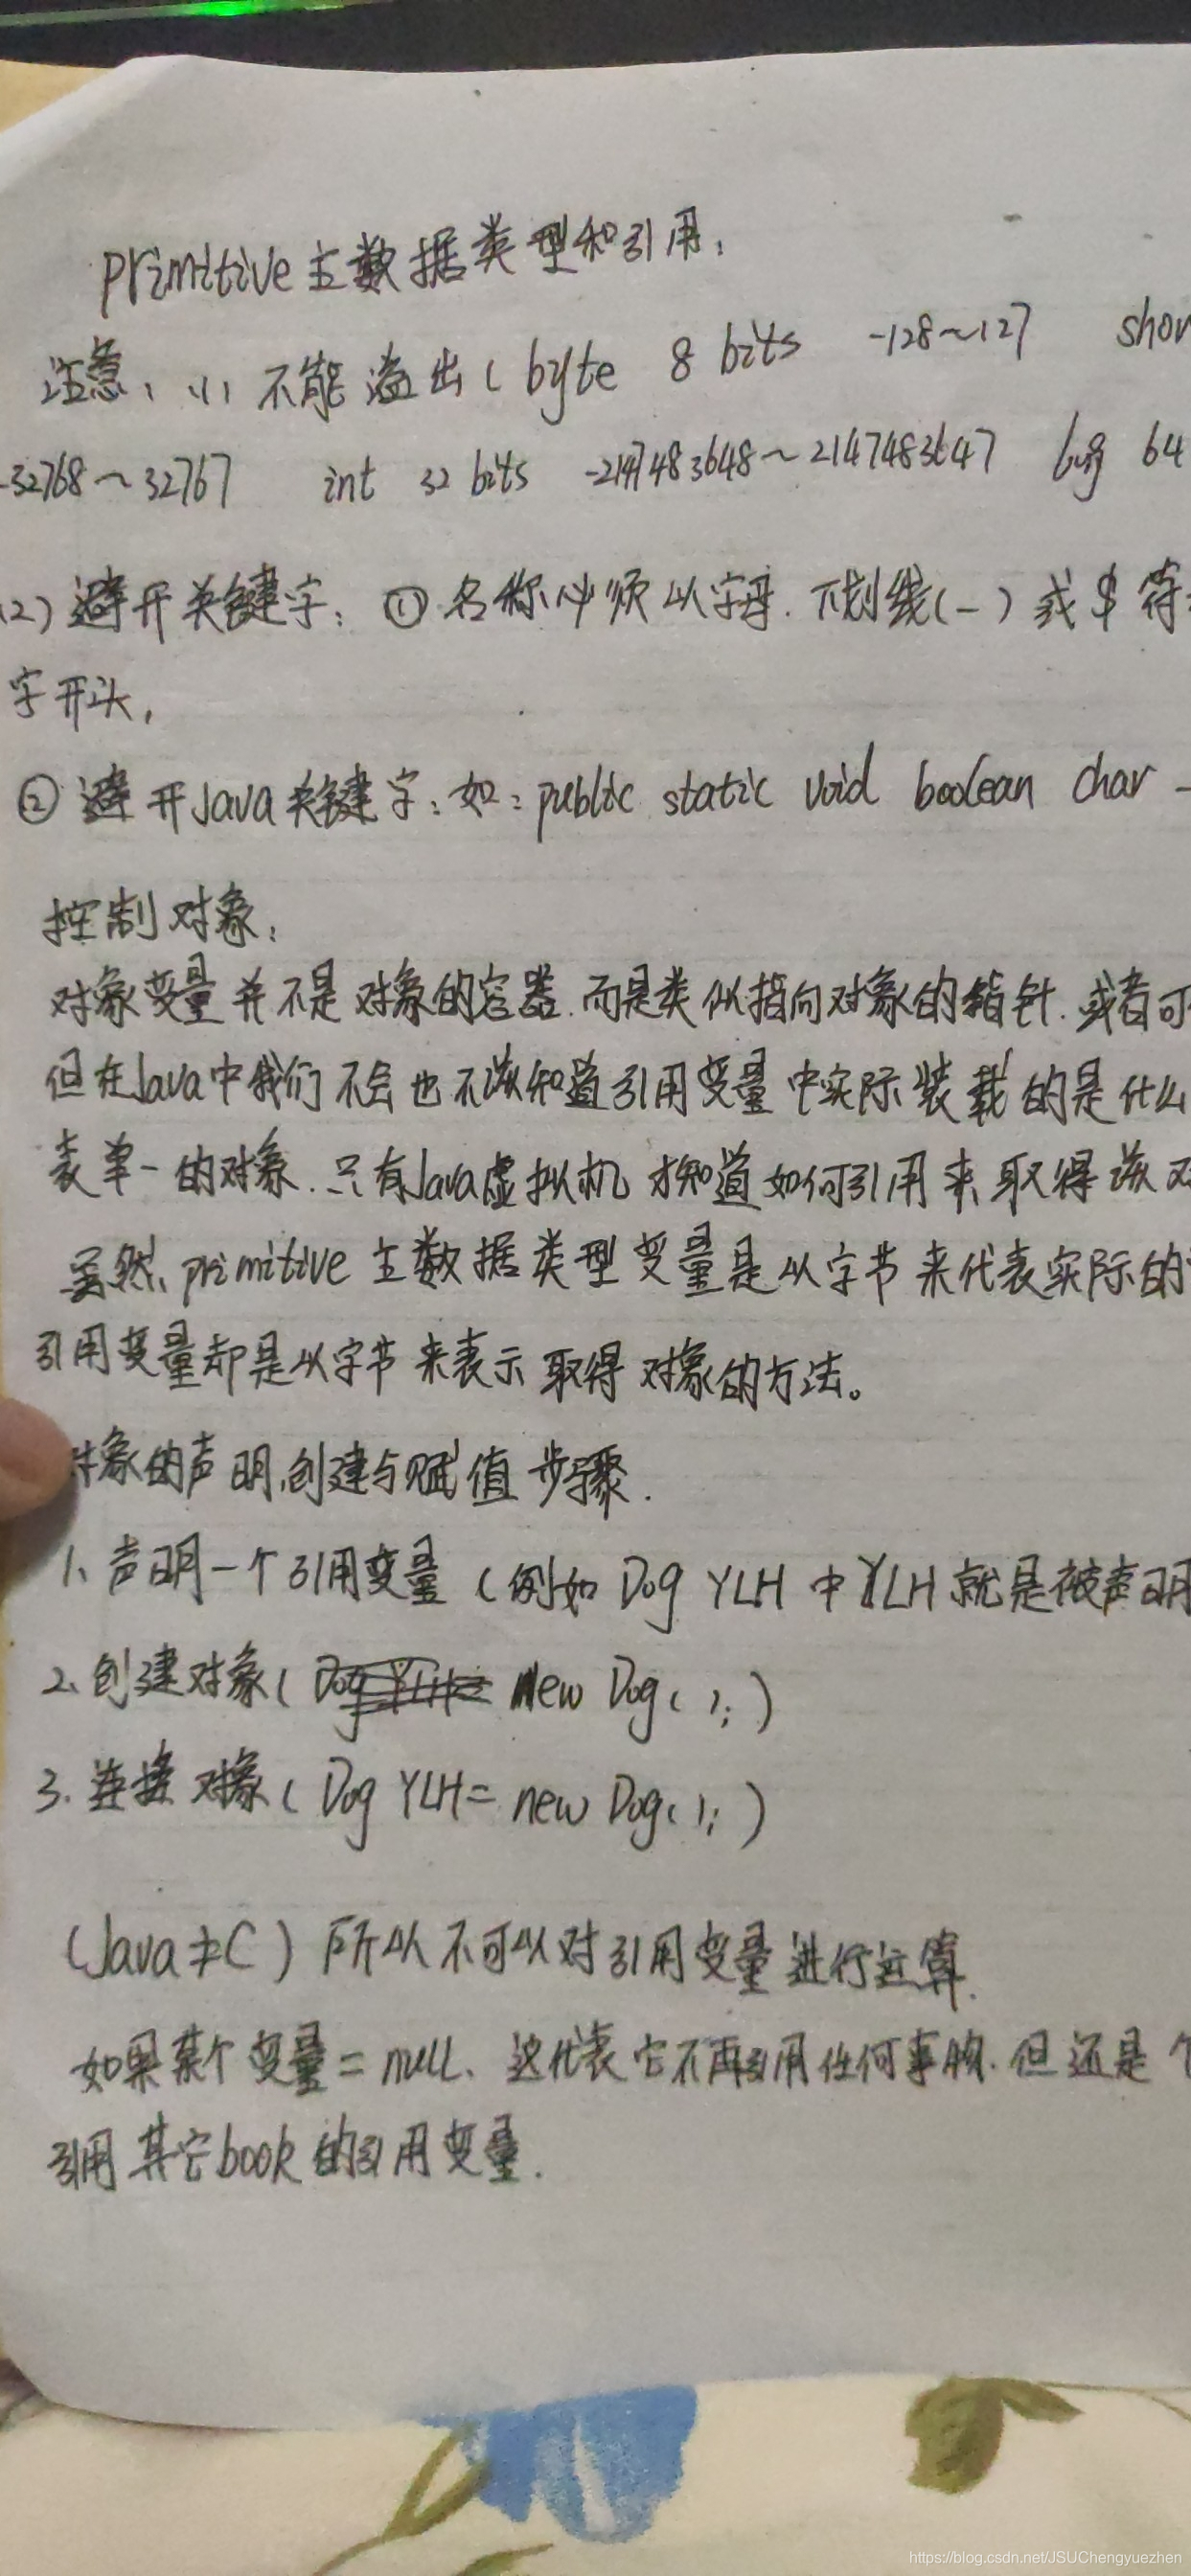 primitive主数据类型和引用:
注意:(1)不能溢出(byte 8 bits -128~127 shor
-32768~32767 int 32 bits -2147483648~2147483647 long 64
(2)避开关键字:①名称必须以字母.下划线(-)或$符
字开头,
②避开Java关键字:如:public static void boolean char -
控制对象:
对象变量并不是对象的容器.而是类似指向对象的指针.或者可
但在Java中我们不会也不该知道引用变量中实际装载的是什么
表单一的对象.只有Java虚拟机才知道如何引用来取得该对
虽然primitive主数据类型变量是以字节来代表实际的
引用变量却是以字节来表示取得对象的方法。
对象的声明,创建与赋值步骤.
1、声明一个引用变量(例如Dog YLH中YLH就是被声明
2、创建对象( new Dog();)
3.连接对象(Dog YLH=new Dog();)
(Java≠C)所以不可以对引用变量进行运算.
如果某个变量=null、这代表它不再引用任何事物.但还是个
引用其它book的引用变量.
https://blog.csdn.net/JSUChengyuezhen